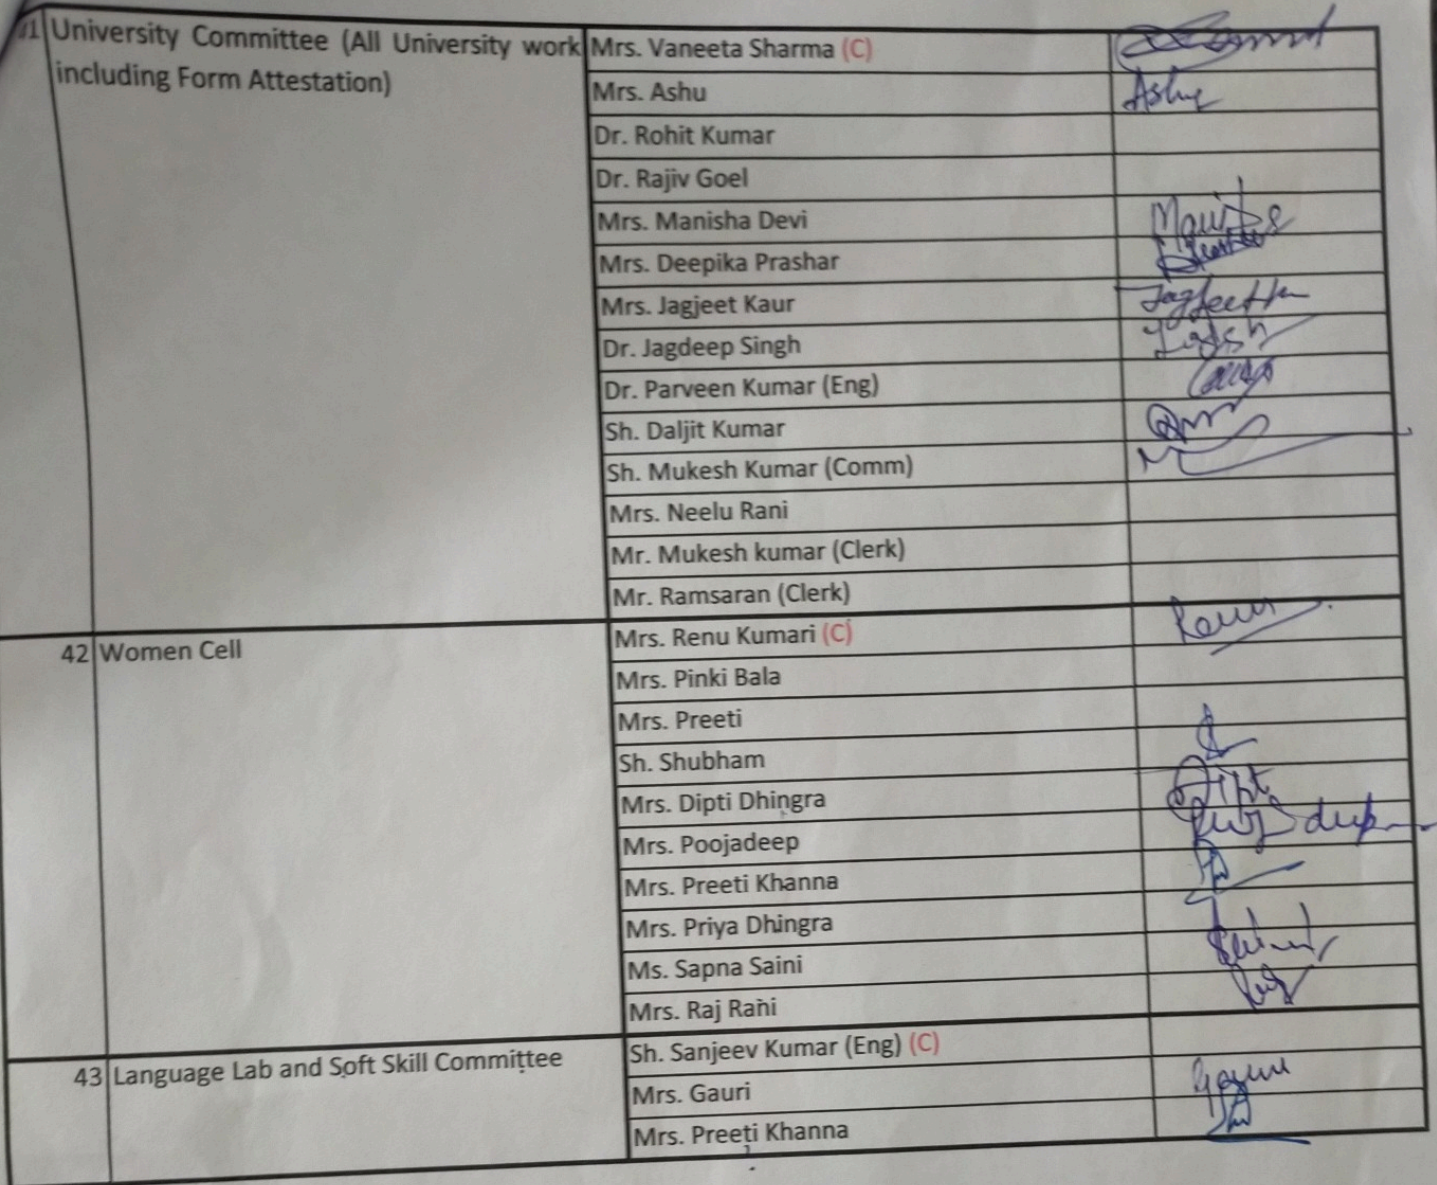 University Committee (All University work
including Form Attestation)
Mrs. Vaneeta Sharma (C)
Mrs. Ashu
Ashu
Dr. Rohit Kumar
Dr. Rajiv Goel
Mrs. Manisha Devi
Mrs. Deepika Prashar
Mrs. Jagjeet Kaur
Dr. Jagdeep Singh
Dr. Parveen Kumar (Eng)
Sh. Daljit Kumar
Sh. Mukesh Kumar (Comm)
Mrs. Neelu Rani
Mr. Mukesh kumar (Clerk)
Mr. Ramsaran (Clerk)
42 Women Cell
Mrs. Renu Kumari (C)
Mrs. Pinki Bala
Mrs. Preeti
Sh. Shubham
Mrs. Dipti Dhingra
Mrs. Poojadeep
Mrs. Preeti Khanna
Mrs. Priya Dhingra
Ms. Sapna Saini
Mrs. Raj Rani
43 Language Lab and Soft Skill Committee
Sh. Sanjeev Kumar (Eng) (C)
Mrs. Gauri
Mrs. Preeti Khanna